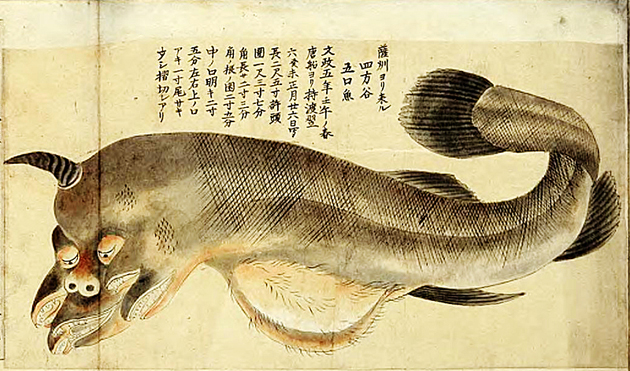 薩州ヨリ来ル
四方谷
五口魚
文政五年壬午ノ春
唐船ヨリ持渡翌
六癸未正月廿六日写
長二尺五寸許頭
囲一尺三寸七分
角長サ二寸三分
角ノ根ノ囲二寸五分
中ノ口明キ二寸
五分左右上ノ口
アキ一寸尾サキ
摺切レアリ